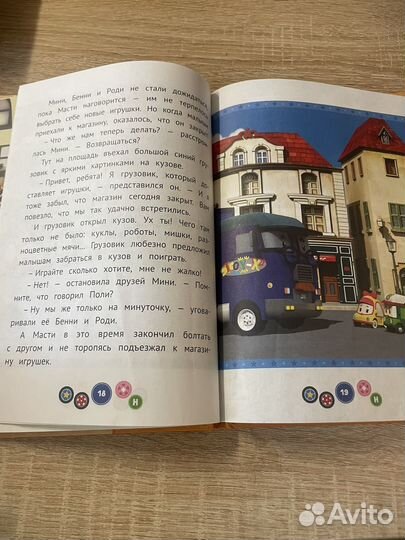 Мини, Бенни и Роди не стали дожидаться,
пока Масти наговорится — им не терпелось
выбрать себе новые игрушки. Но когда малыши
приехали к магазину, оказалось, что он закрыт.
— Что же нам теперь делать? — расстрои-
лась Мини. — Возвращаться?
Тут на площадь въехал большой синий гру-
зовик с яркими картинками на кузове.
— Привет, ребята! Я грузовик, который до-
ставляет игрушки, — представился он. — И я
тоже забыл, что магазин сегодня закрыт. Вам
повезло, что мы так удачно встретились.
И грузовик открыл кузов. Ух ты! Чего там
только не было: куклы, роботы, мишки, раз-
ноцветные мячи... Грузовик любезно предложил
малышам забраться в кузов и поиграть.
— Играйте сколько хотите, мне не жалко!
— Нет! — остановила друзей Мини. — Пом-
ните, что говорил Поли?
— Ну мы же только на минуточку, — угова-
ривали её Бенни и Роди.
А Масти в это время закончил болтать
с другом и не торопясь подъезжал к магази-
ну игрушек.
18
H
19
H
Avito